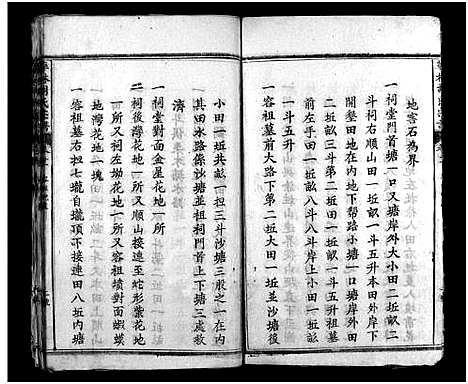 地雲石為界
一祠堂門首塘一口又塘岸外大小田二坵畝二
斗祠右順山田一坵畝一斗五升本田外岸下
開墾田地在內地下幫路小田一塘岸外田一
坵畝三斗第二坵田一坵畝二斗又容祖墓
前左手田一坵畝八斗岸上小田三坵畝
一斗五升
一容祖墓前大路下第二坵大田一坵並沙塘後
小田一坵共畝一石二斗沙塘三股之一在內
其田水路係沙塘並祖祠門首上下塘三處救
濟
一祠堂對面金星花地一所
一祠後灣花地一所又順山接連至蛇形葉花地
一所又祠左坳花地一所又容祖墳對面蝦蟆
地灣花地一塊
一容祖墓右扯七壠壠頂下接連田八坵內塘